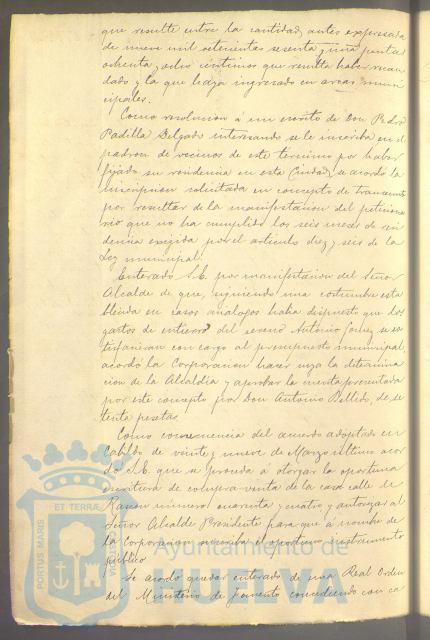 que resulte entre la cantidad antes expresada
de nueve mil setecientas sesenta y una pesetas
ochenta y ocho céntimos que resulta haber recau
dado y la que haya ingresado en arcas muni
cipales.
Como resolucion a un escrito de Don Pedro
Padilla Delgado interesando se le inscriba en el
padron de vecinos de este termino por haber
fijado su residencia en esta Ciudad, se acordó la
inscripcion solicitada en concepto de transeunte
por resultar de la manifestacion del peticiona
rio que no ha cumplido los seis meses de resi
dencia exigida por el articulo diez y seis de la
Ley municipal.
Enterado S.E. por manifestacion del Señor
Alcalde de que, siguiendo una costumbre esta
blecida en casos análogos habia dispuesto que los
gastos de entierro del sereno Antonio Gomez se sa
tisfacieran con cargo al presupuesto municipal,
acordó la Corporacion hacer suya la determina
cion de la Alcaldia y aprobar la cuenta presentada
por este concepto por Don Antonio Bellido, de se
tenta pesetas
Como consecuencia del acuerdo adoptado en
Cabildo de veinte y nueve de Marzo ultimo acor
dó S.E. que se proceda á otorgar la oportuna
escritura de compra-venta de la casa calle de
Rascon numero cuarenta y cuatro y autorizar al
Señor Alcalde Presidente para que á nombre de
la Corporacion suscriba el oportuno instrumento
publico
Se acordó quedar enterado de una Real Orden
del Ministerio de Fomento concediendo con ca
PORTUS MARIS ET TERRÆ CUSTODIA
Ayuntamiento de
HUELVA